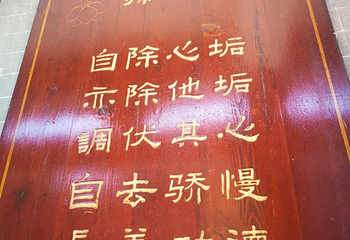 自除心垢
亦除他垢
調伏其心
自去骄慢